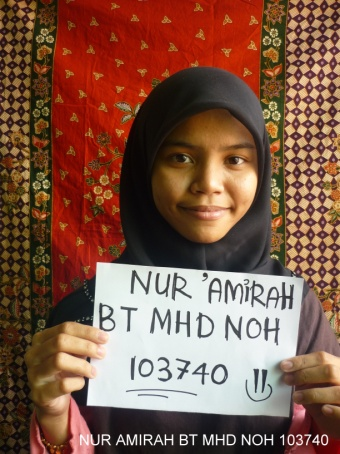 NUR 'AMIRAH
BT MHD NOH
103740
NUR AMIRAH BT MHD NOH 103740